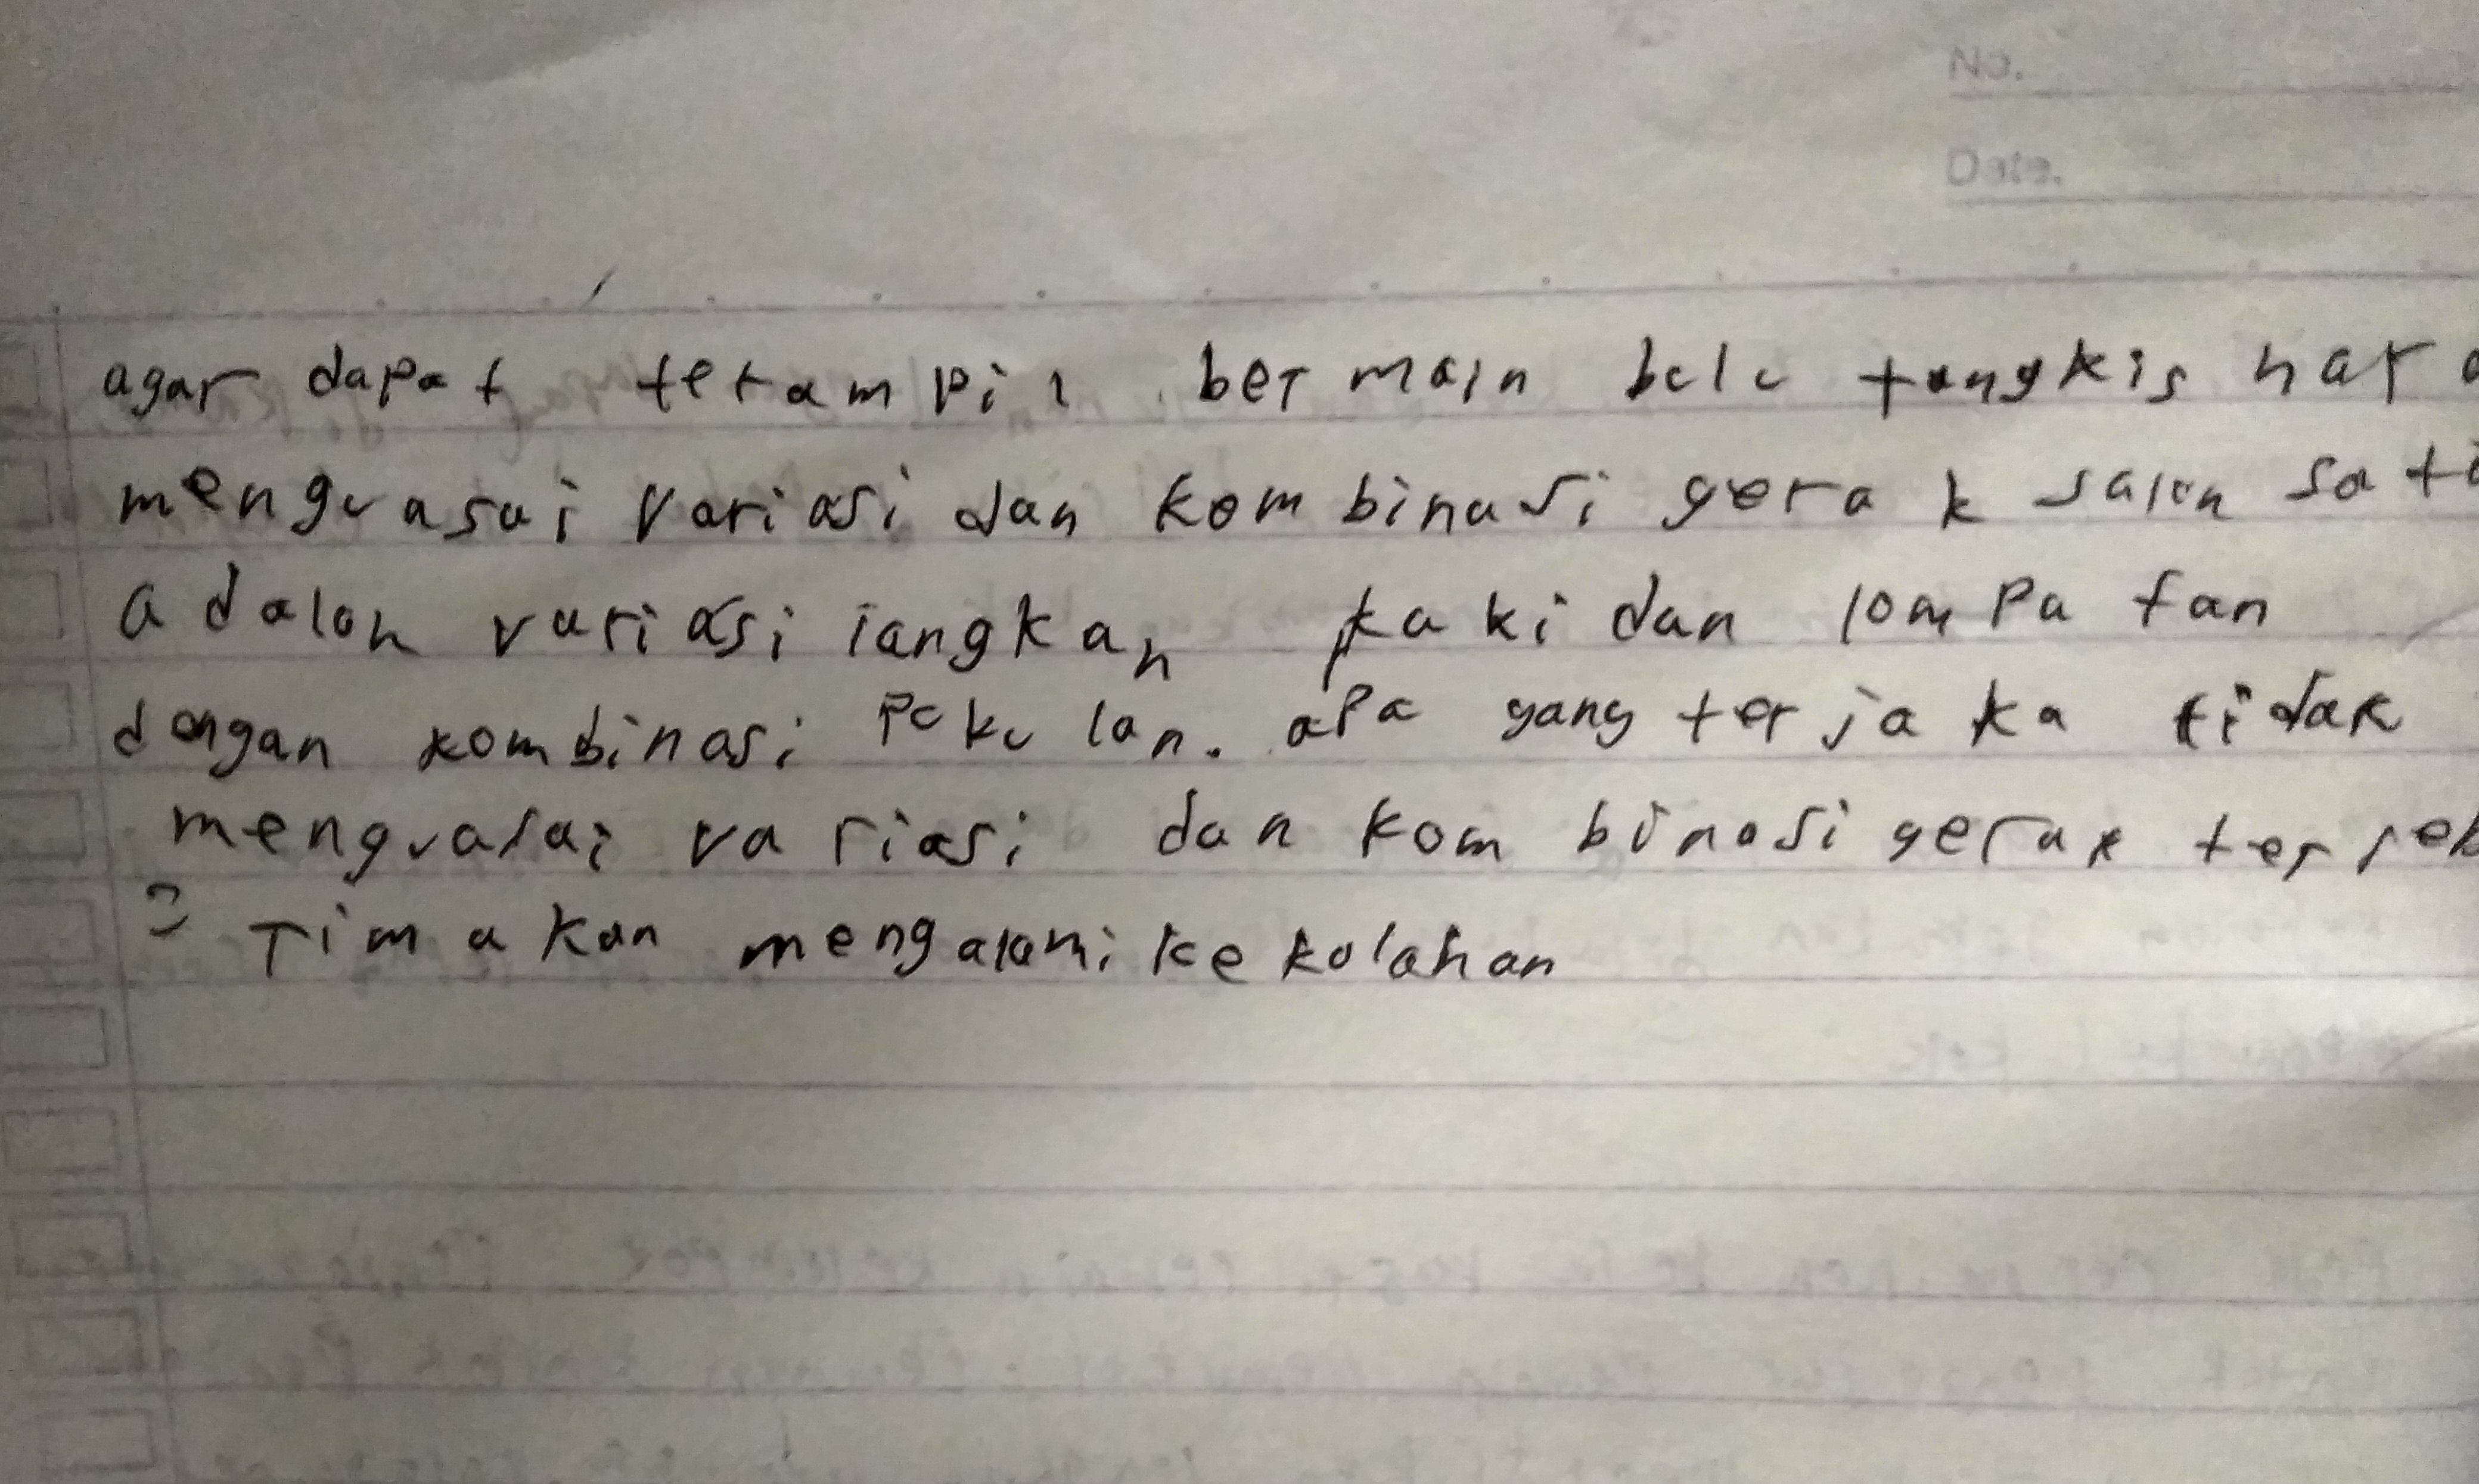 No.
Date.
agar dapat terampil bermain bulu tangkis har
menguasai variasi dan kombinasi gerak salah sat
adalah variasi langkah kaki dan lompatan
dengan kombinasi pukulan. apa yang terjaka tidak
menguasai variasi dan kombinasi gerak terseb
? Tim akan mengalami kekalahan